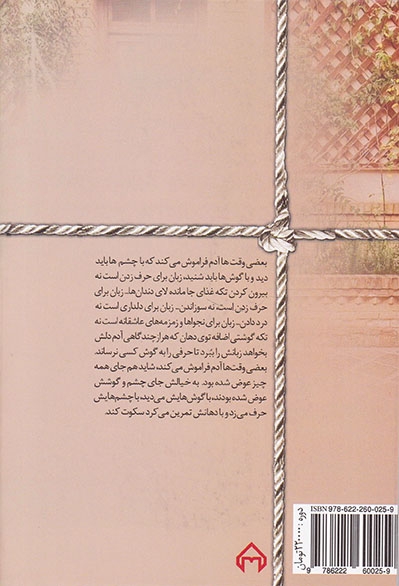 بعضی وقت‌ها آدم فراموش می‌کند که با چشم‌ها باید
دید و با گوش‌ها باید شنید، زبان برای حرف زدن است نه
بیرون کردن تکه غذای جا مانده لای دندان‌ها.. زبان برای
حرف زدن است، نه سوزاندن.. زبان برای دلداری است نه
درد دادن.. زبان برای نجواها و زمزمه‌های عاشقانه است نه
تکه گوشتی اضافه توی دهان که هر از چند گاهی آدم دلش
بخواهد زبانش را ببُرد تا حرفی را به گوش کسی نرساند.
بعضی وقت‌ها آدم فراموش می‌کند، شاید هم جای همه
چیز عوض شده بود. به خیالش جای چشم و گوشش
عوض شده بودند، با گوش‌هایش می‌دید، با چشم‌هایش
حرف می‌زد و با دهانش تمرین می‌کرد سکوت کند.
ISBN 978-622-260-025-9
9 786222 600259